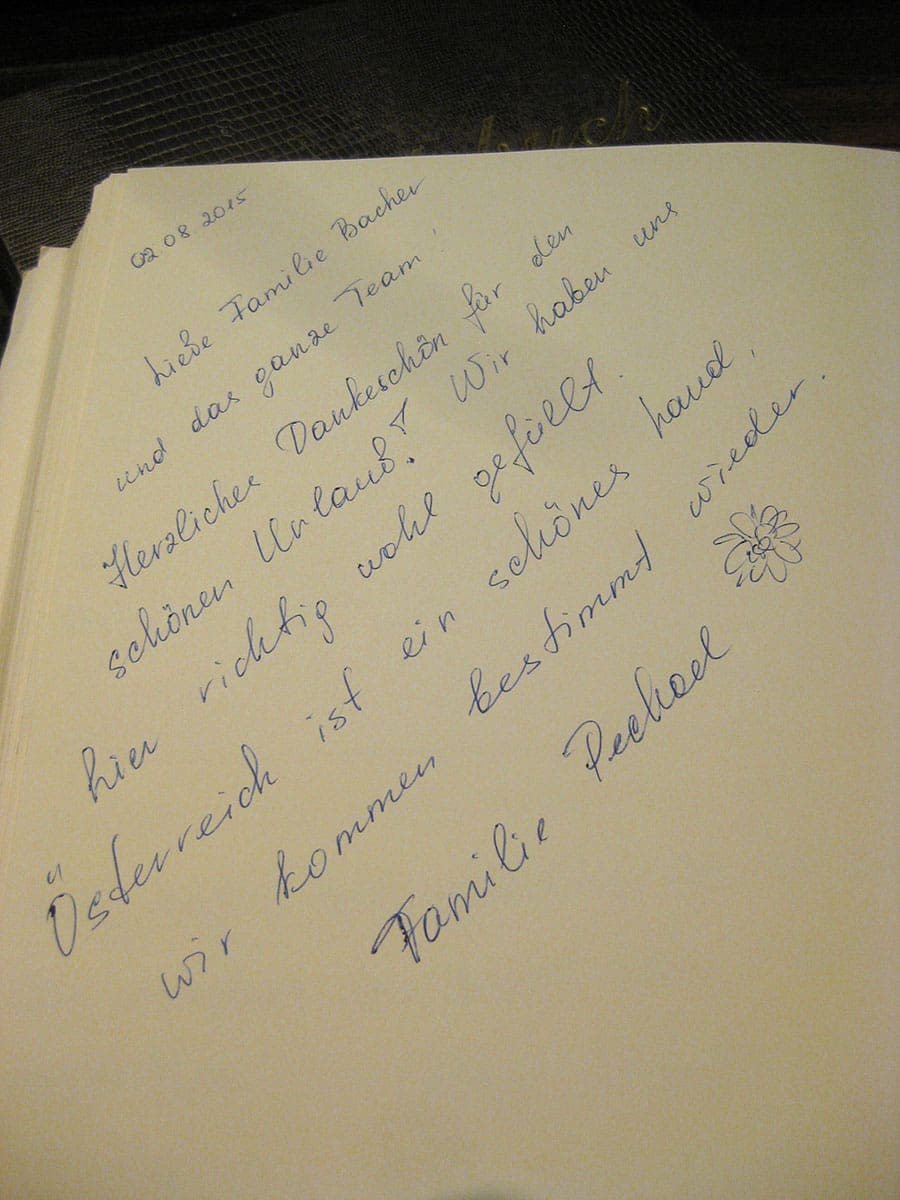 buch
02.08.2015
Liebe Familie Bacher
und das ganze Team!
Herzliches Dankeschön für den
schönen Urlaub! Wir haben uns
hier richtig wohl gefüllt.
Österreich ist ein schönes Land,
wir kommen bestimmt wieder.
Familie